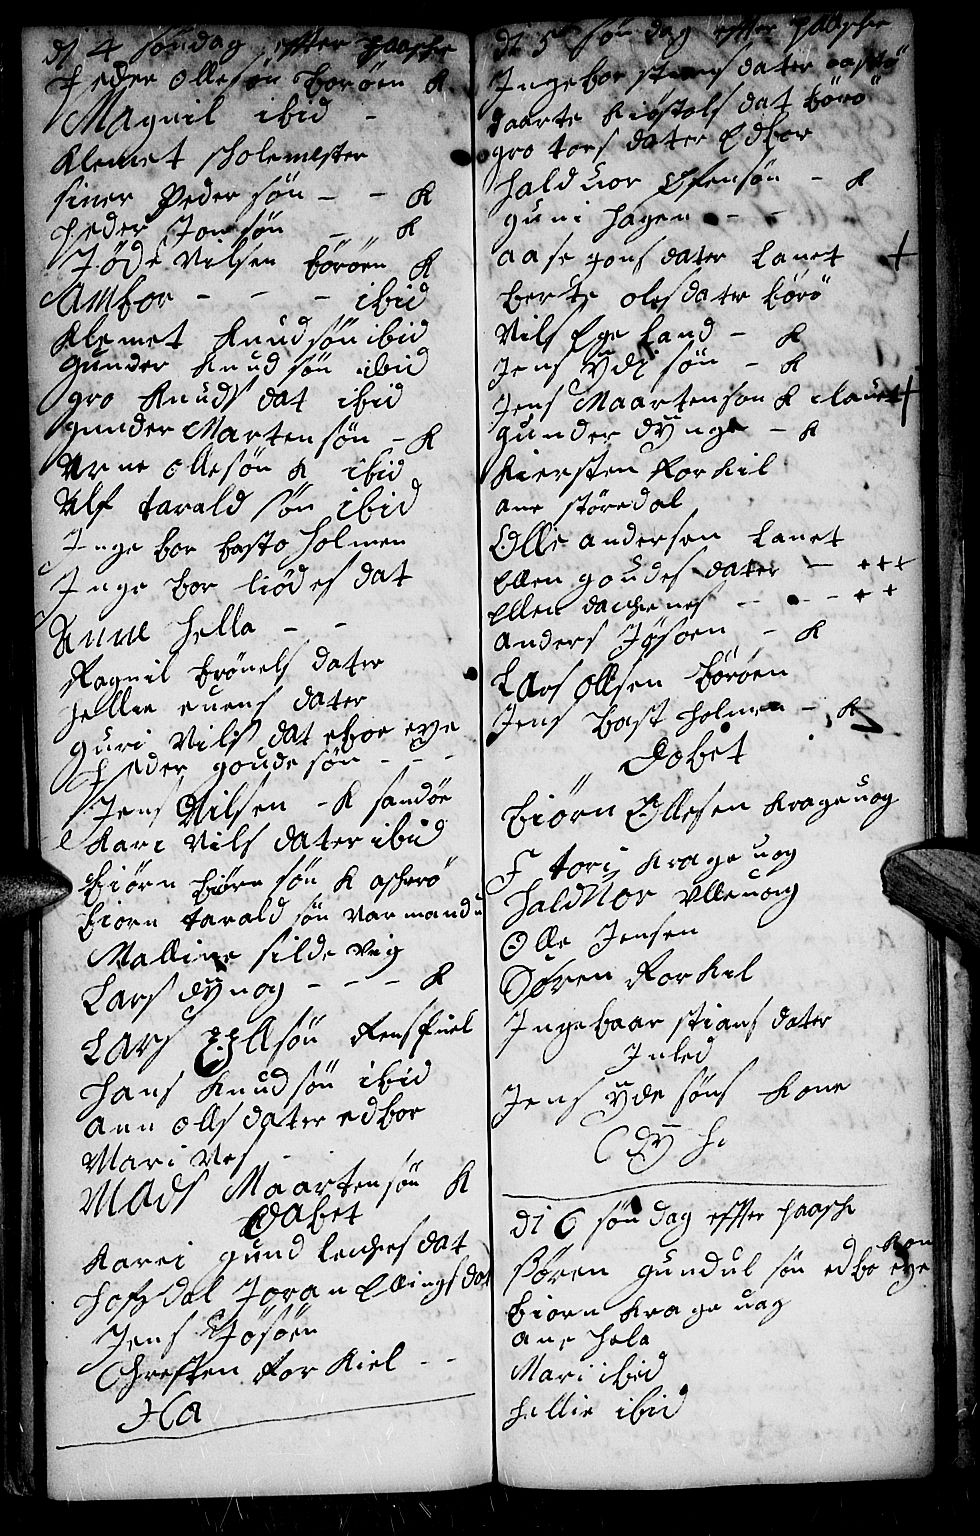 di 4 søndag efter paasche
Peder Ollesøn børøen K
Magnil ibid
Klemet skolemester
siver Pedersøn - - K
Peder Jonsøn - K
Jøde Nilsen børøen K
Ambor - - - ibid
Klemet Knudsøn ibid
gunder Knudsøn ibid
gro Knuds dat ibid
gunder Martensøn - K
Arne Ollesøn K ibid
Alf tarald søn ibid
Inge bor basto holmen
Inge bor liødes dat
Anne hella - -
Ragnil brønels dater
hellie euens dater
guri Nils dat eboe eye
Peder goudesøn - - -
Jens Nilsen - K sandøe
Kari Nils dater ibid
biørn biørn søn K askerø
biorn tarald søn Narmandu
Malline silde vig
Lars dynog - - - K
Lars Ellsøn
hans Knudsøn ibid
ann olls dater edbor
Mari Nes
Mads Maartensøn K
Dabet
Karei gund leches dat
Joran Ellings dat
Jens Tøsøen
Chresten forKiel - -
Ha
di 5 søndag effter paasche
Ingebor stians dater askrø
daarte Kiøstols dat børø
gro tors dater Edbor
halduor Efensøn - K
guni hagen - -
aase jons dater Lanet +
berte oles dater børø
Nils Ege land - K
Jens ydesøn - K
Jens Maartenson K +
gunder dynge - K
Kiersten forKil
ane støredal
Olle andersen Lanet
Ellen goudes dater - + + +
Ellen dachenes - - - + +
anders Jøsøen - K
Lars Ollsen børøen
Jens bast holmen - K
Dobet
biørn Ollesen Krageuog
tori Krageuog
haldNor Ulleuog
Olle Jensen
Søren forKil
Ingebaar stians dater
Inled
Jens yde søns Kone
Dy h.
di 6 søndag effter paasche
Kon
Søren gundul søn edbo eye
biorn Krageuag
ane hela
Mari ibid
hellie ibid